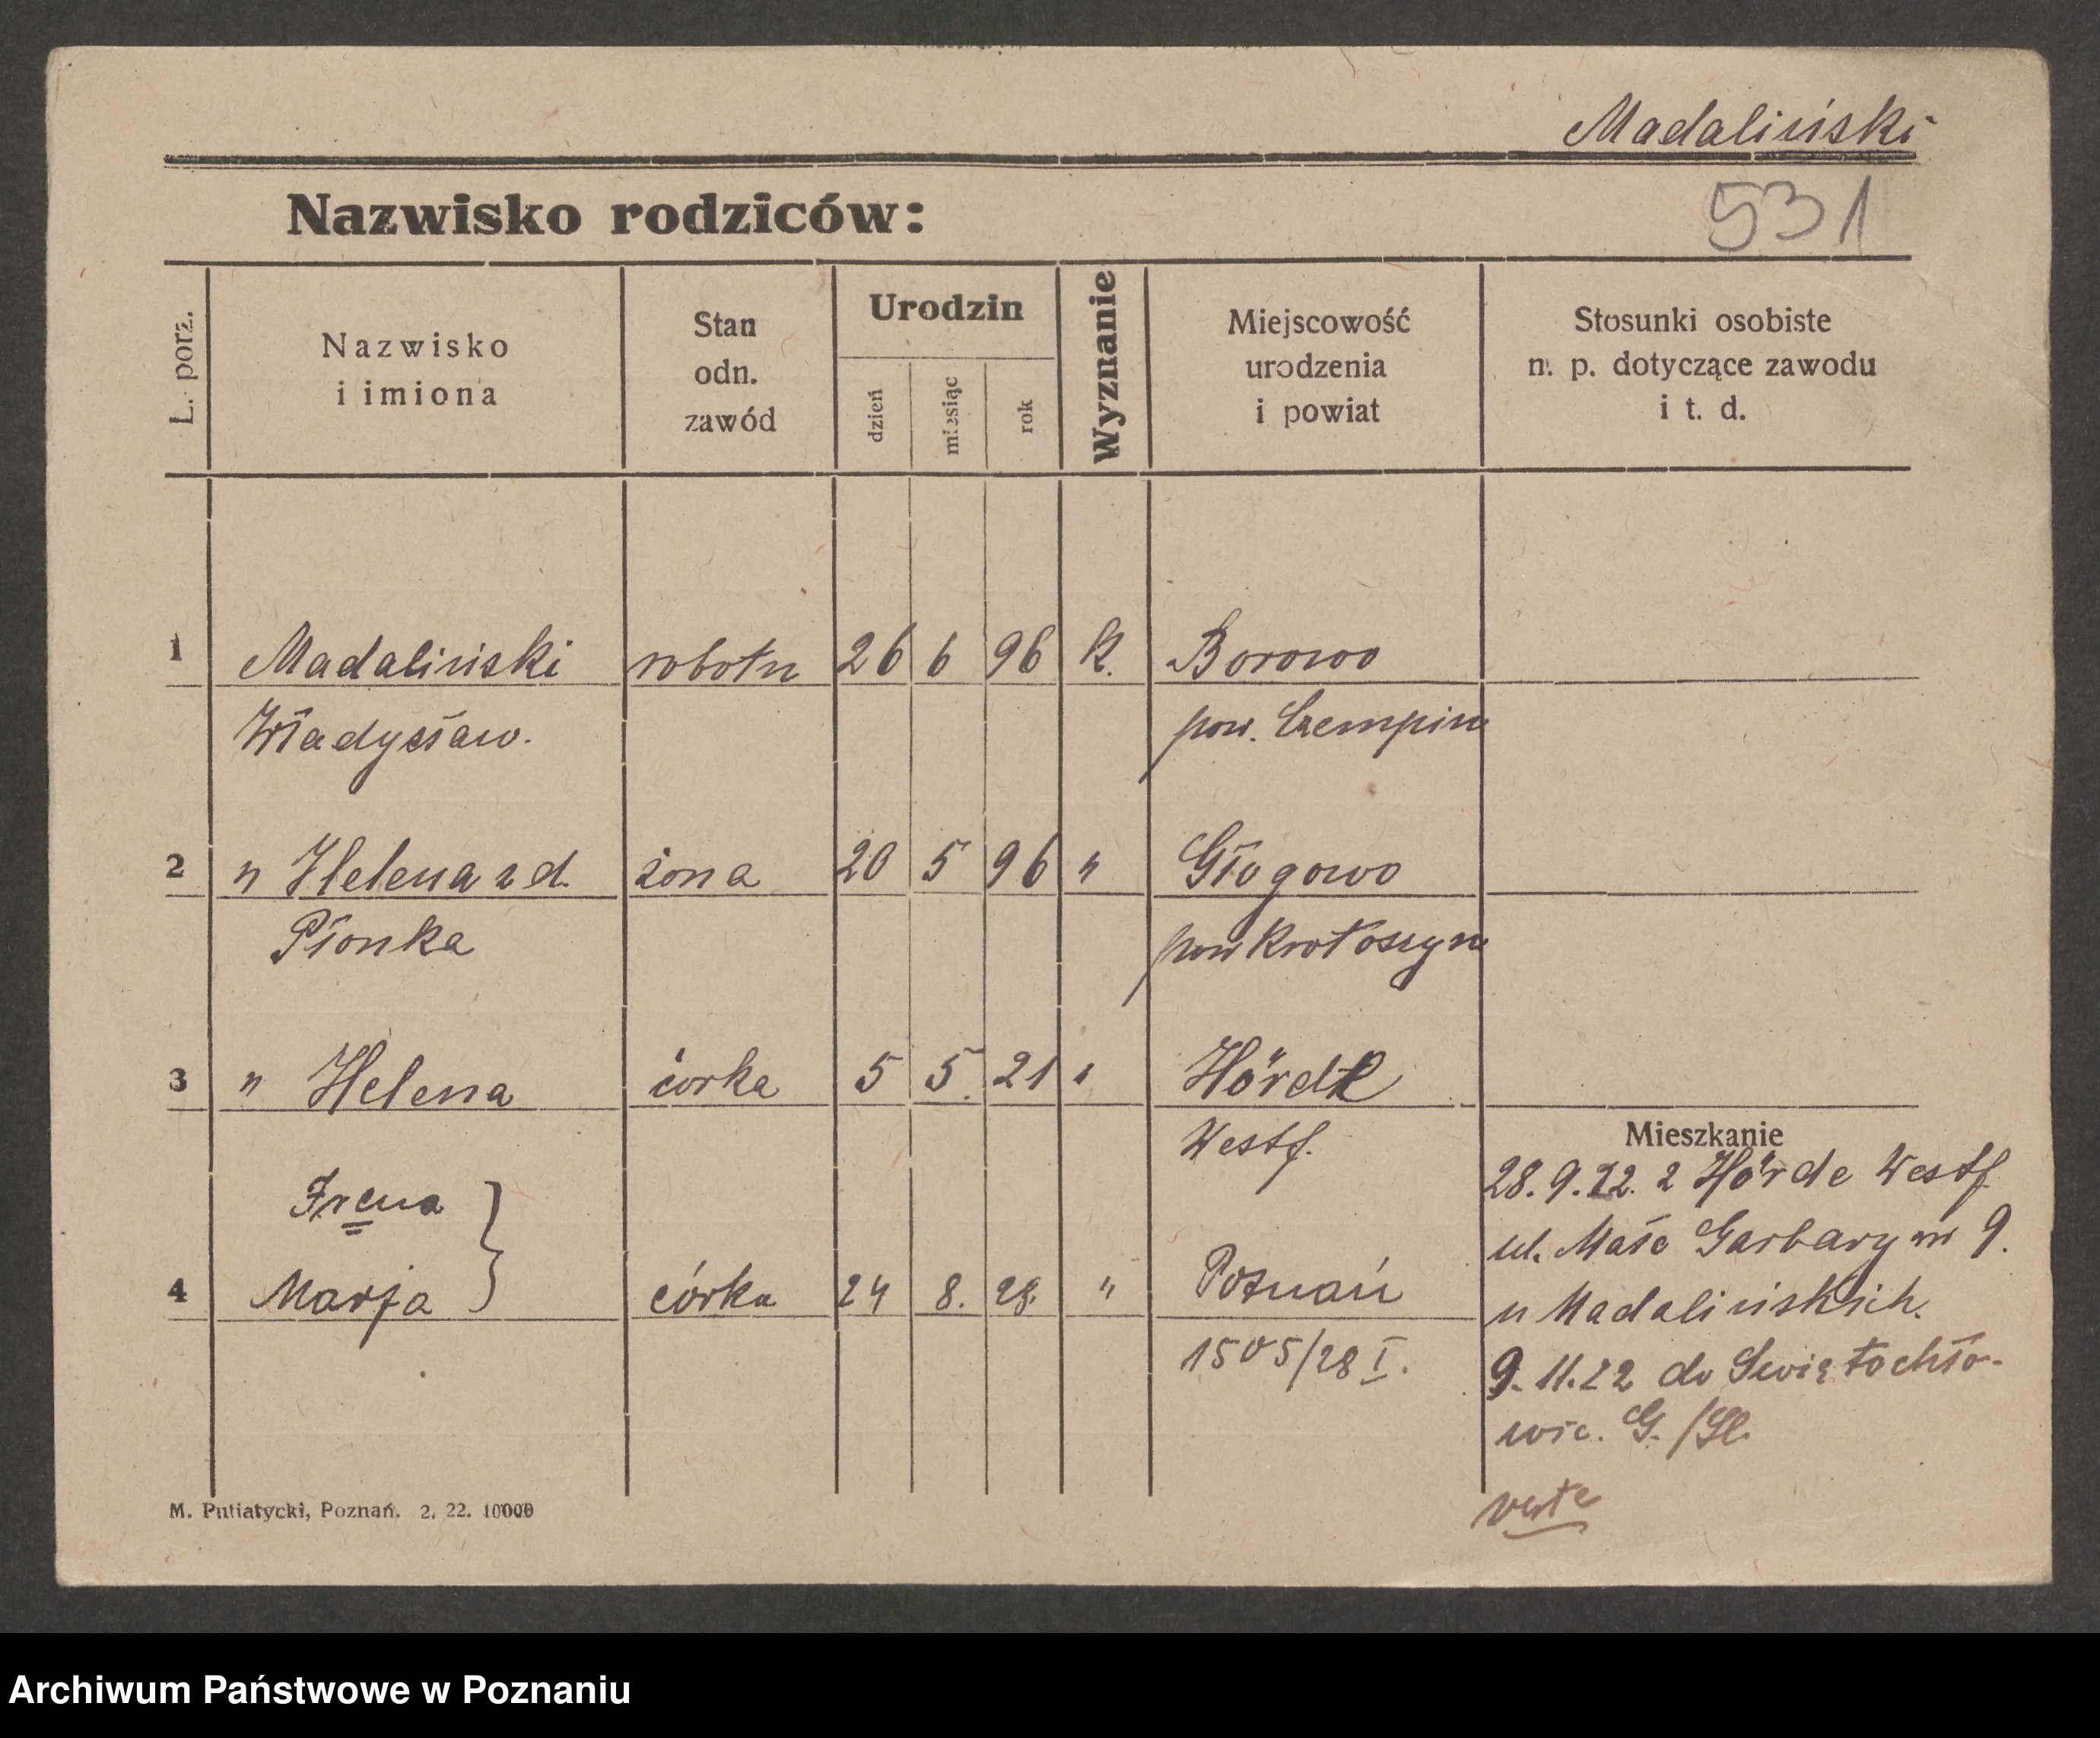 Madaliński
Nazwisko rodziców:
531
L. porz.
Nazwisko
i imiona
Stan
odn.
zawód
Urodzin
dzień
miesiąc
rok
Wyznanie
Miejscowość
urodzenia
i powiat
Stosunki osobiste
n. p. dotyczące zawodu
i t. d.
1 Madaliński robotn 26 6 96 k. Borowo
Władysław. pow. Czempin
2 " Helena z d. żona 20 5 96 " Głogowo
Płonka pow Krotoszyn
3 " Helena córka 5 5. 21 " Hörde
Westf.
Mieszkanie
28.9.22. z Hörde Westf
ul. Małe Garbary nr 9.
u Madalińskich.
9.11.22 do Świętochło-
wic. G./Śl.
verte
Irena
4 Marja } córka 24 8. 28. " Poznań
1505/28 I.
M. Putiatycki, Poznań. 2. 22. 10000
Archiwum Państwowe w Poznaniu